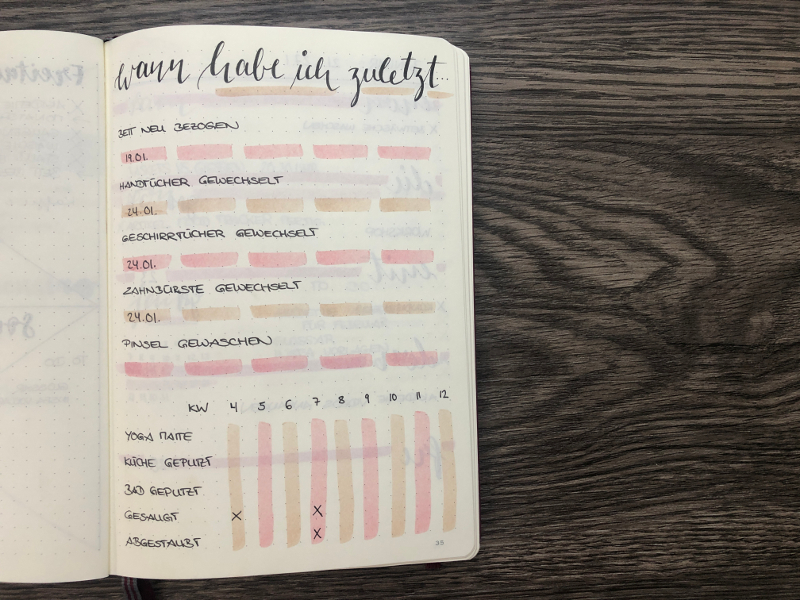 wann habe ich zuletzt...
BETT NEU BEZOGEN
19.01.
HANDTÜCHER GEWECHSELT
24.01.
GESCHIRRTÜCHER GEWECHSELT
24.01.
ZAHNBÜRSTE GEWECHSELT
24.01.
PINSEL GEWASCHEN
KW 4 5 6 7 8 9 10 11 12
YOGA MATTE
KÜCHE GEPUTZT
BAD GEPUTZT
GESAUGT X X
ABGESTAUBT X
35